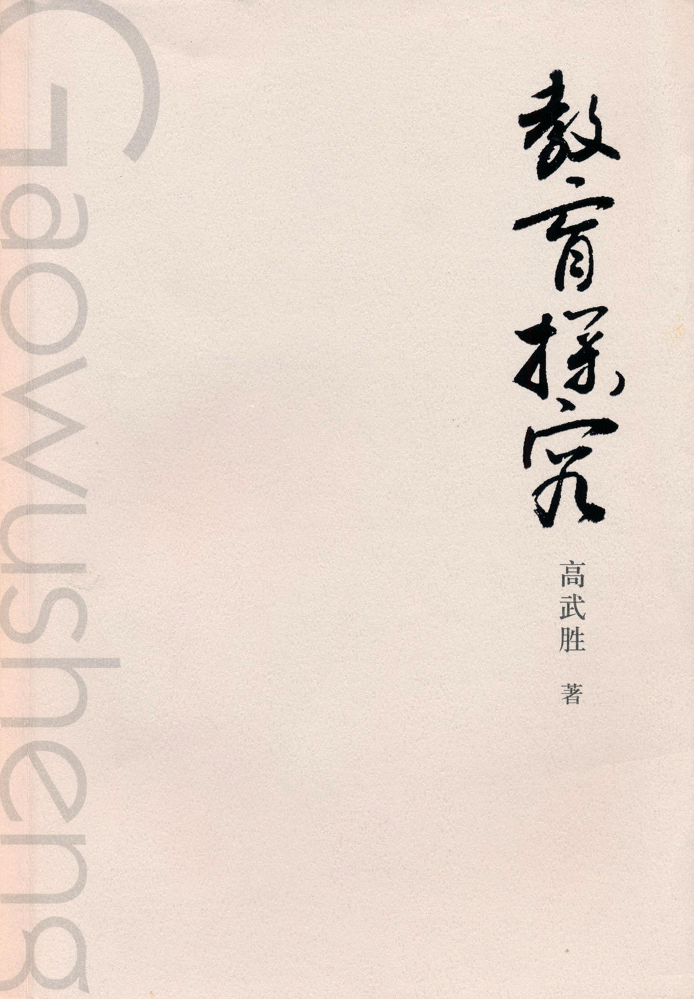 教育探究
高武胜 著
Gaowusheng